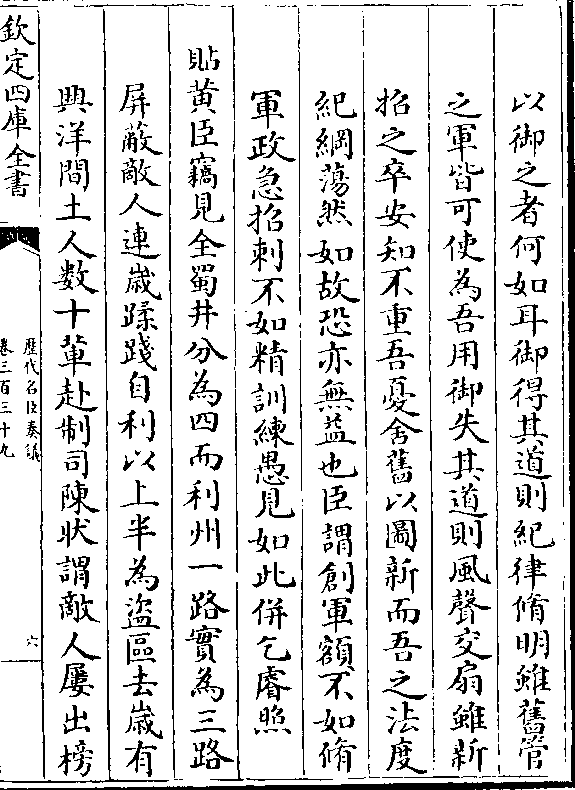 以御之者何如耳御得其道則紀律脩明雖舊管
之軍皆可使為吾用御失其道則風聲交扇雖新
招之卒安知不重吾憂舍舊以圖新而吾之法度
紀綱蕩然如故恐亦無益也臣謂創軍額不如脩
軍政急招刺不如精訓練愚見如此併乞睿照
貼黄臣竊見全蜀井分為四而利州一路實為三路
屏蔽敵人連歲蹂踐自利以上半為盜區去歲有
興洋間土人数十軰赴制司陳狀謂敵人屢出榜
欽定四庫全書
歷代名臣奏議
卷三百三十九
六